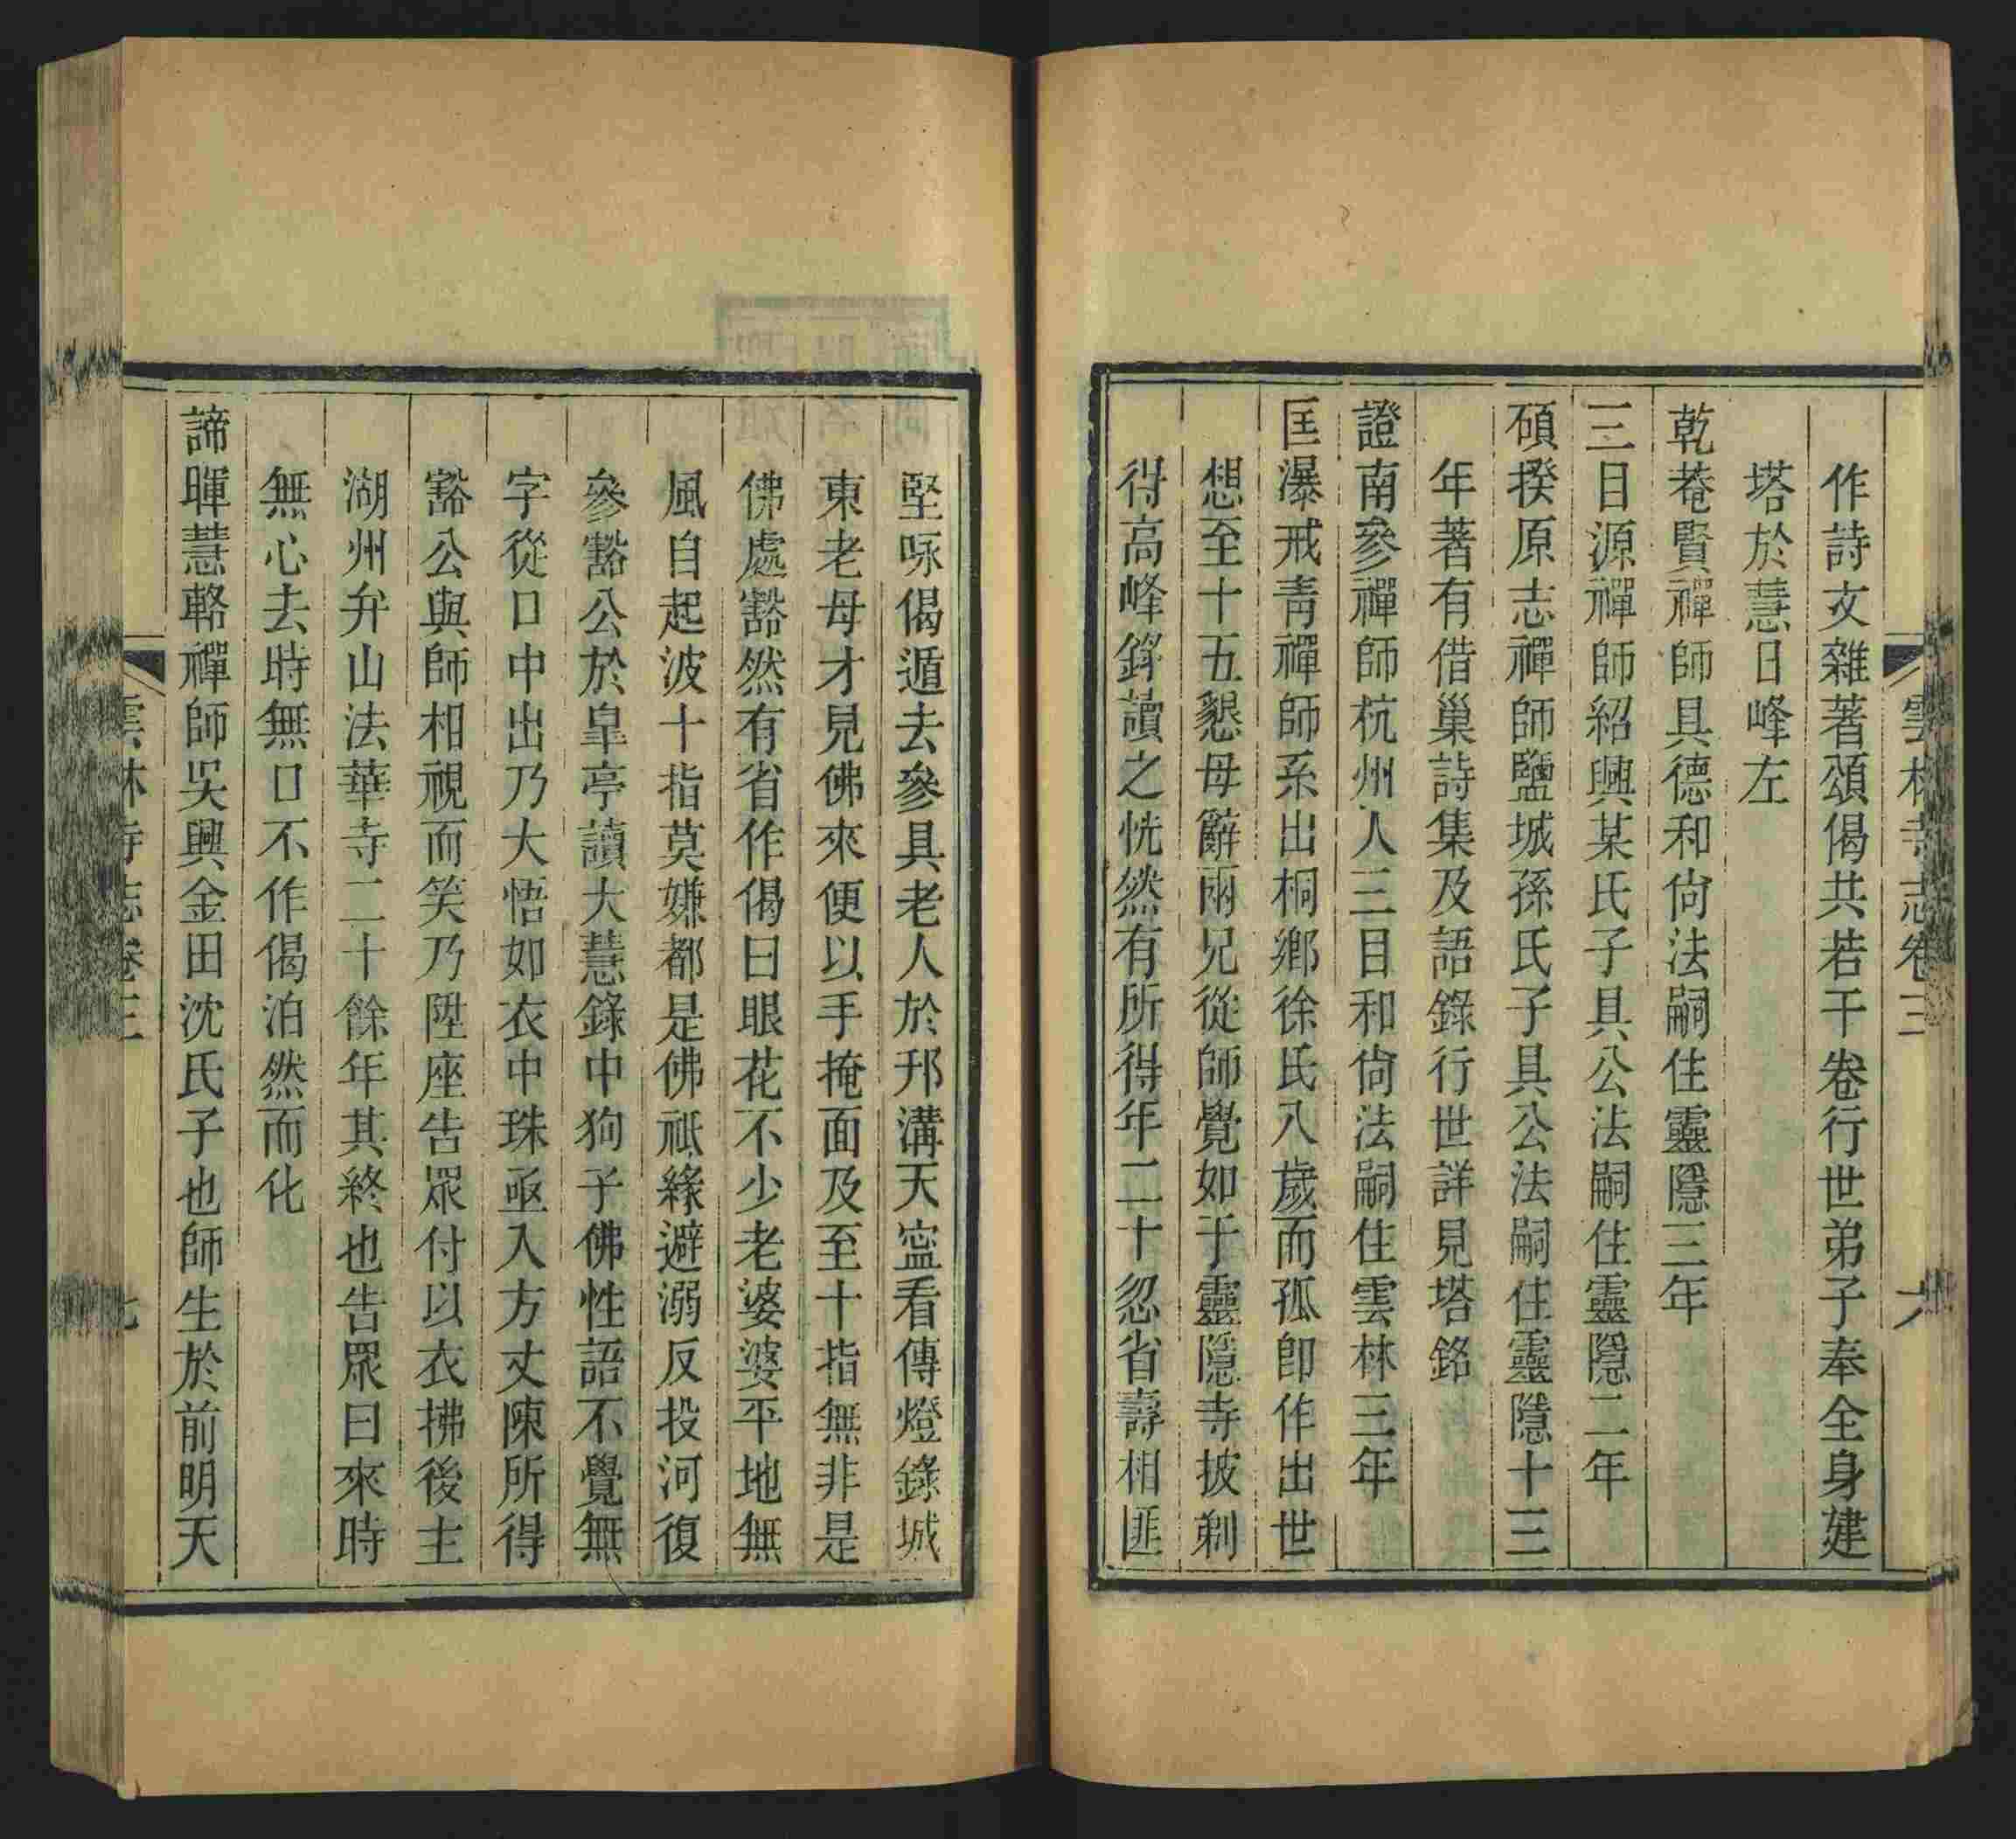 雲林寺志卷三 六
作詩文雜著頌偈共若干卷行世弟子奉全身建
塔於慧日峰左
乾菴賢禪師具德和尙法嗣住靈隱三年
三目源禪師紹興某氏子具公法嗣住靈隱二年
碩揆原志禪師鹽城孫氏子具公法嗣住靈隱十三
年著有借巢詩集及語錄行世詳見塔銘
證南參禪師杭州人三目和尙法嗣住雲林三年
匡瀑戒靑禪師系出桐鄕徐氏八歲而孤卽作出世
想至十五懇母辭兩兄從師覺如于靈隱寺披剃
得高峰錄讀之恍然有所得年二十忽省壽相匪
堅咏偈遁去參具老人於邗溝天寍看傳燈錄城
東老母才見佛來便以手掩面及至十指無非是
佛處豁然有省作偈曰眼花不少老婆婆平地無
風自起波十指莫嫌都是佛祗緣避溺反投河復
參豁公於皐亭讀大慧錄中狗子佛性語不覺無
字從口中出乃大悟如衣中珠亟入方丈陳所得
豁公與師相視而笑乃陞座告眾付以衣拂後主
湖州弁山法華寺二十餘年其終也告眾曰來時
無心去時無口不作偈泊然而化
諦暉慧輅禪師吳興金田沈氏子也師生於前明天
雲林寺志卷三 七